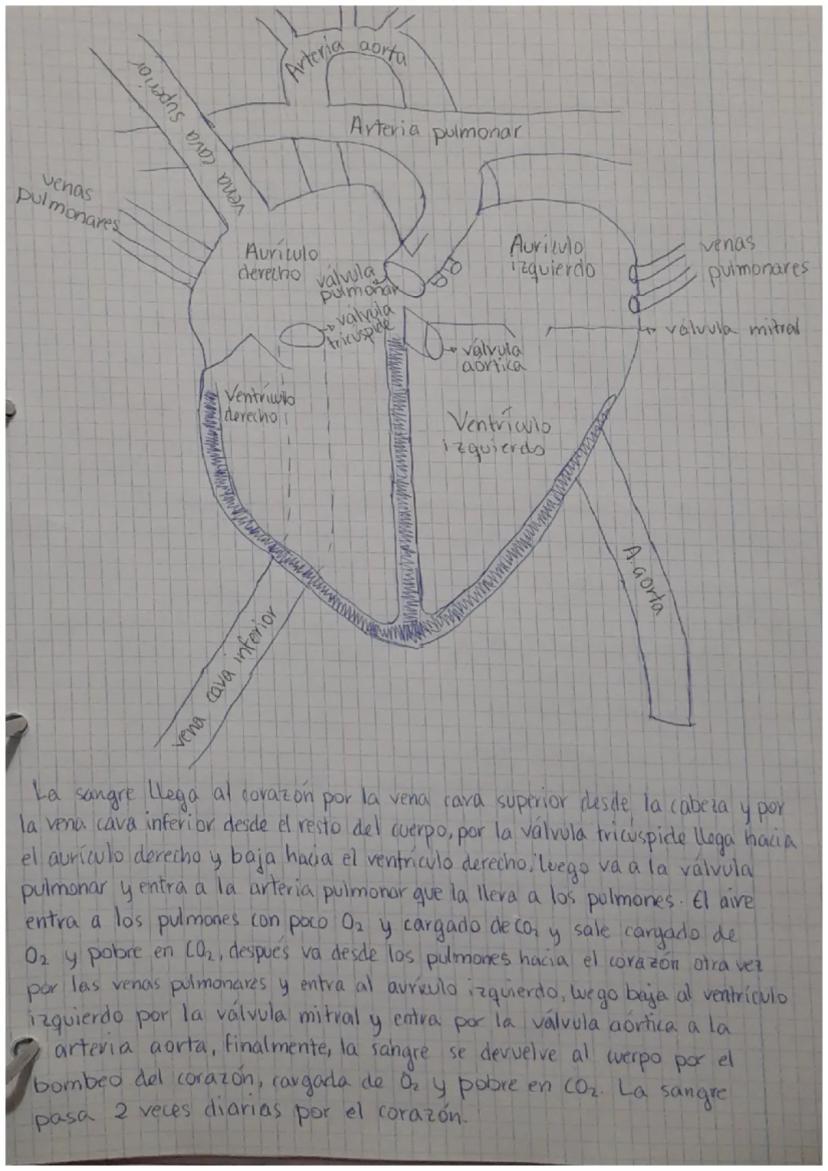 Arteria aorta
vena cava superior
Arteria pulmonar
venas
pulmonares
Aurículo
derecho
válvula
pulmonar
Aurículo
izquierdo
venas
pulmonares
válvula
tricúspide
válvula mitral
válvula
aórtica
Ventrículo
derecho
Ventrículo
izquierdo
A. aorta
vena cava inferior
La sangre llega al corazón por la vena cava superior desde la cabeza y por
la vena cava inferior desde el resto del cuerpo, por la válvula tricúspide llega hacia
el aurículo derecho y baja hacia el ventrículo derecho, luego va a la válvula
pulmonar y entra a la arteria pulmonar que la lleva a los pulmones. El aire
entra a los pulmones con poco O₂ y cargado de CO₂ y sale cargado de
O₂ y pobre en CO₂, después va desde los pulmones hacia el corazón otra vez
por las venas pulmonares y entra al aurículo izquierdo, luego baja al ventrículo
izquierdo por la válvula mitral y entra por la válvula aórtica a la
arteria aorta, finalmente, la sangre se devuelve al cuerpo por el
bombeo del corazón, cargada de O₂ y pobre en CO₂. La sangre
pasa 2 veces diarias por el corazón.